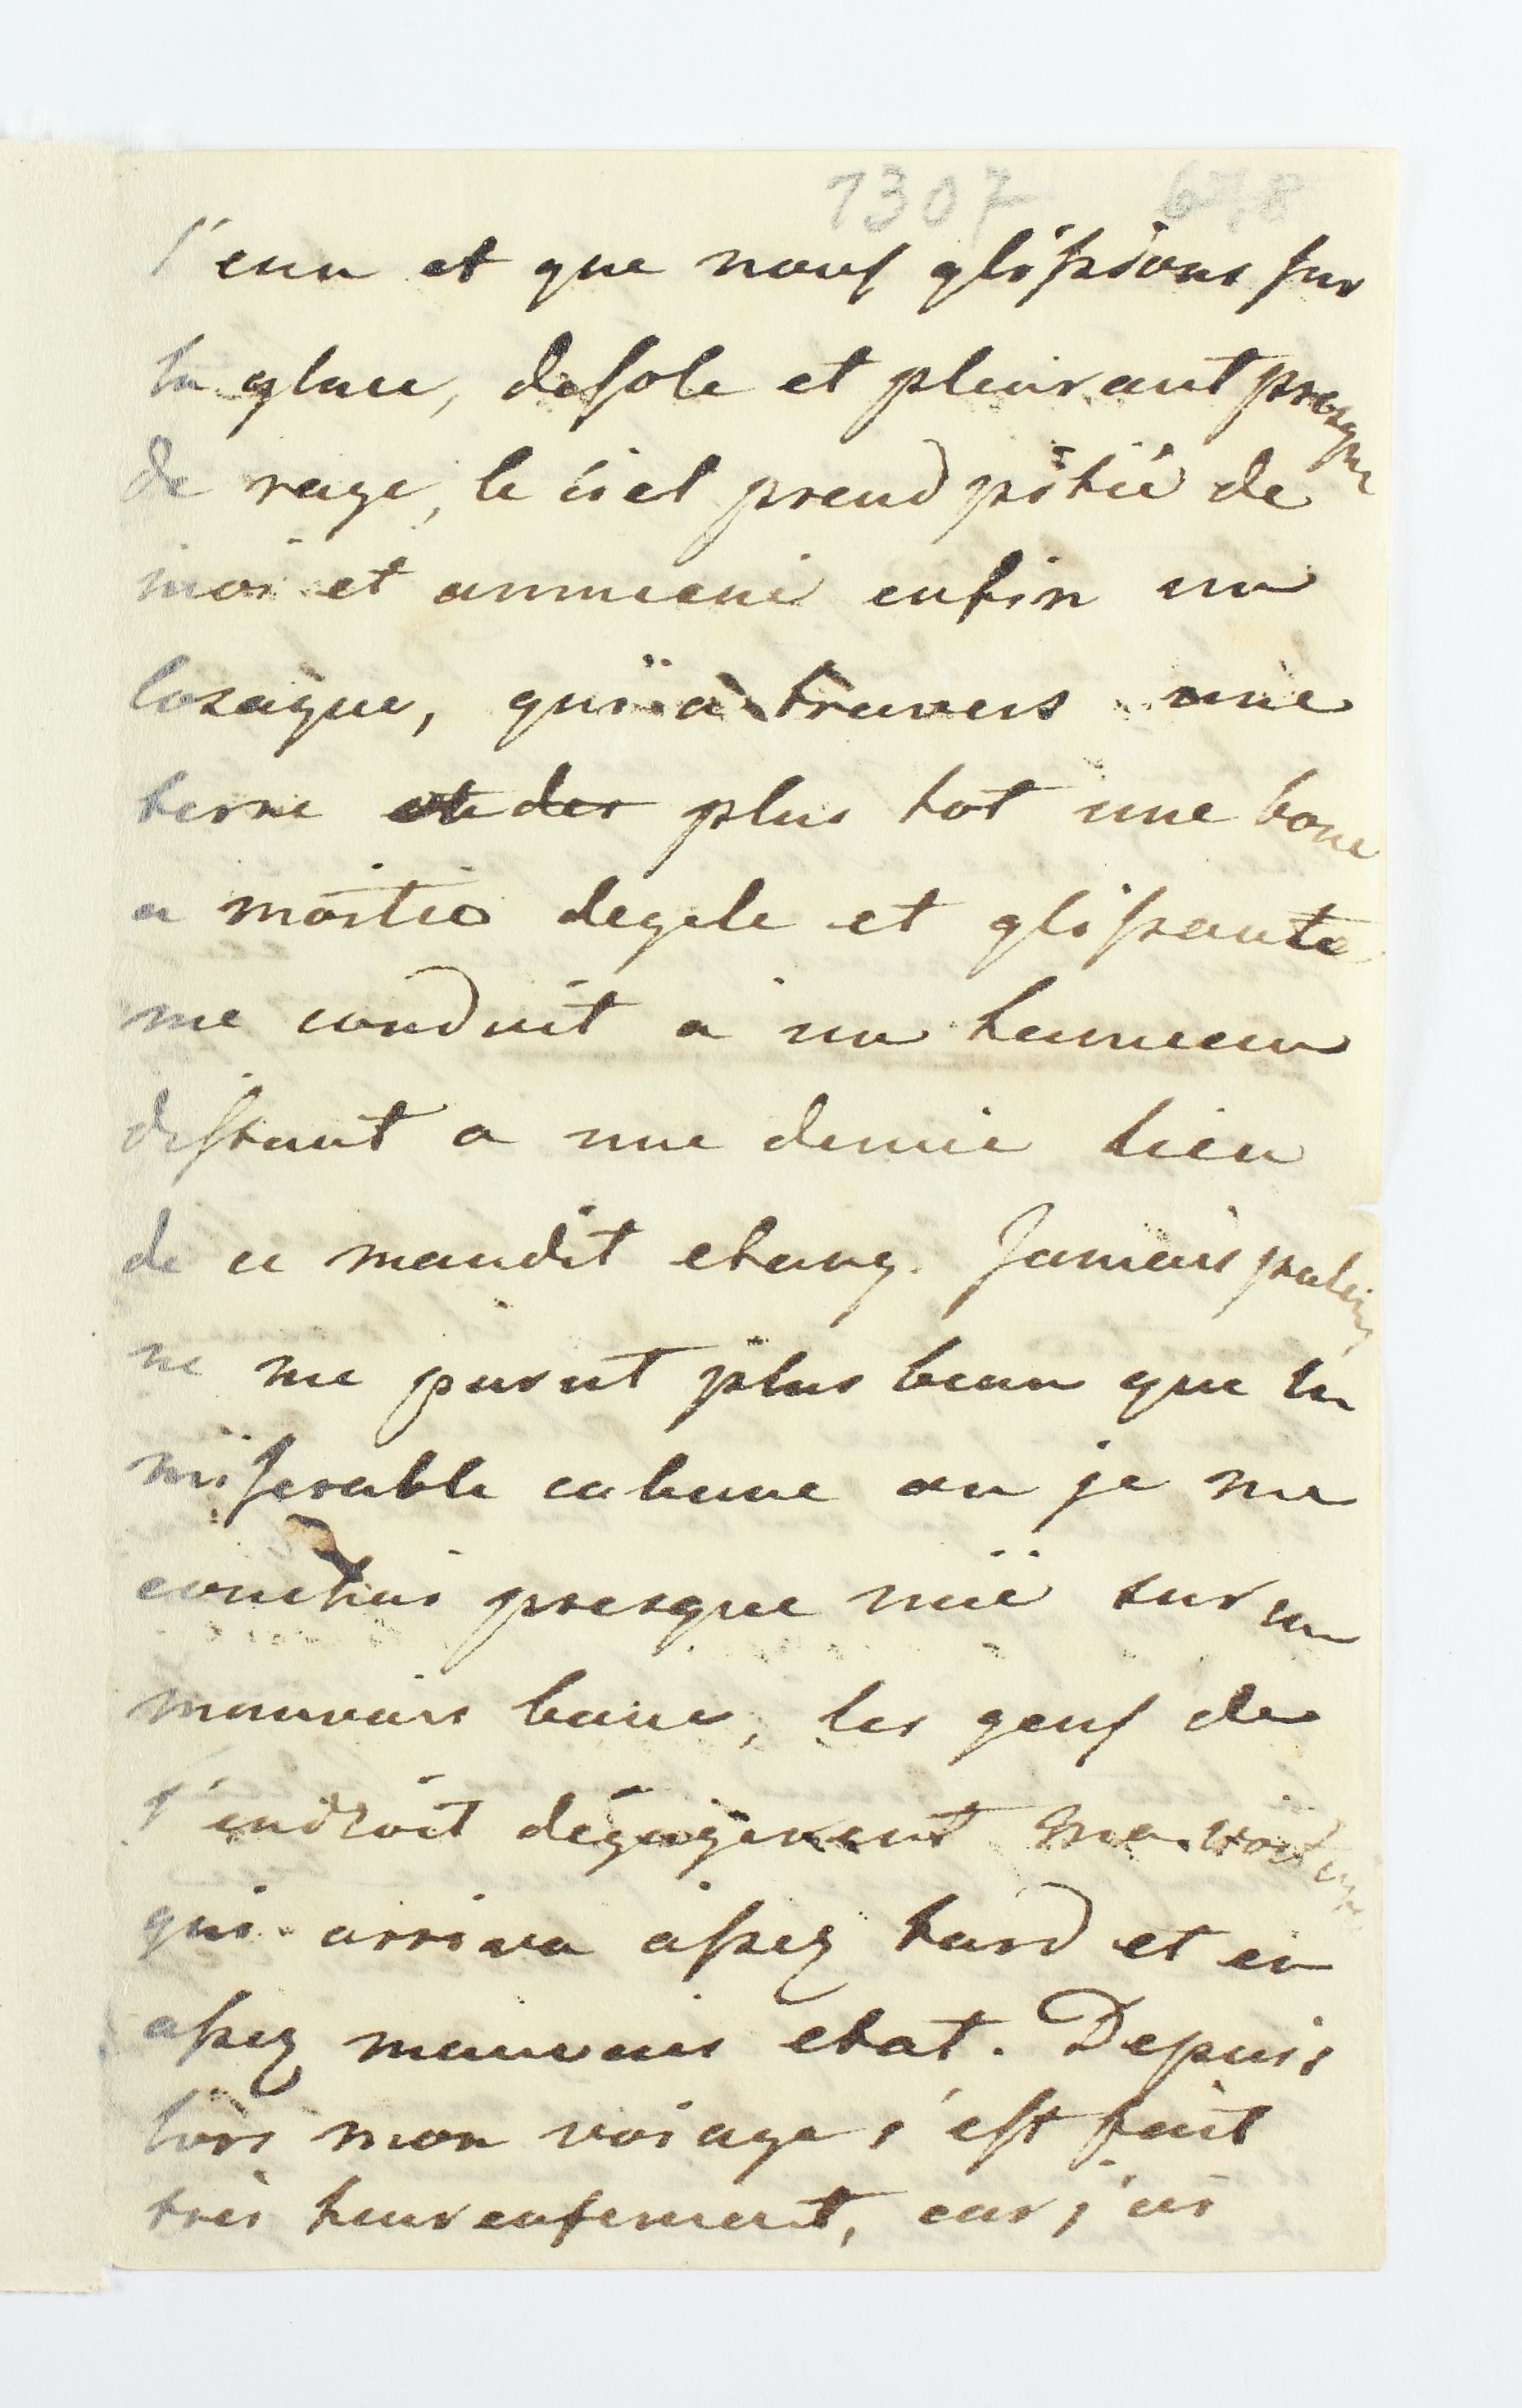 1307 67,8
l'eau et que nous glissions sur
la glace, desole et pleurant presque
de rage, le ciel prend pitié de
moi et ammene enfin un
Cosaque, qui à travers une
terre plus tot une boue
a moitie degele et glissante
me conduit a un hameau
distant a une demie lieu
de ce maudit etang. Jamais palais
ne me parut plus beau que la
miserable cabane ou je me
couchais presque nüe sur un
mauvais banc, les gens de
l'endroit dégagerent ma voiture
qui arriva assez tard et en
assez mauvais etat. Depuis
lors mon voiage s'est fait
très heureusement, car j'ai